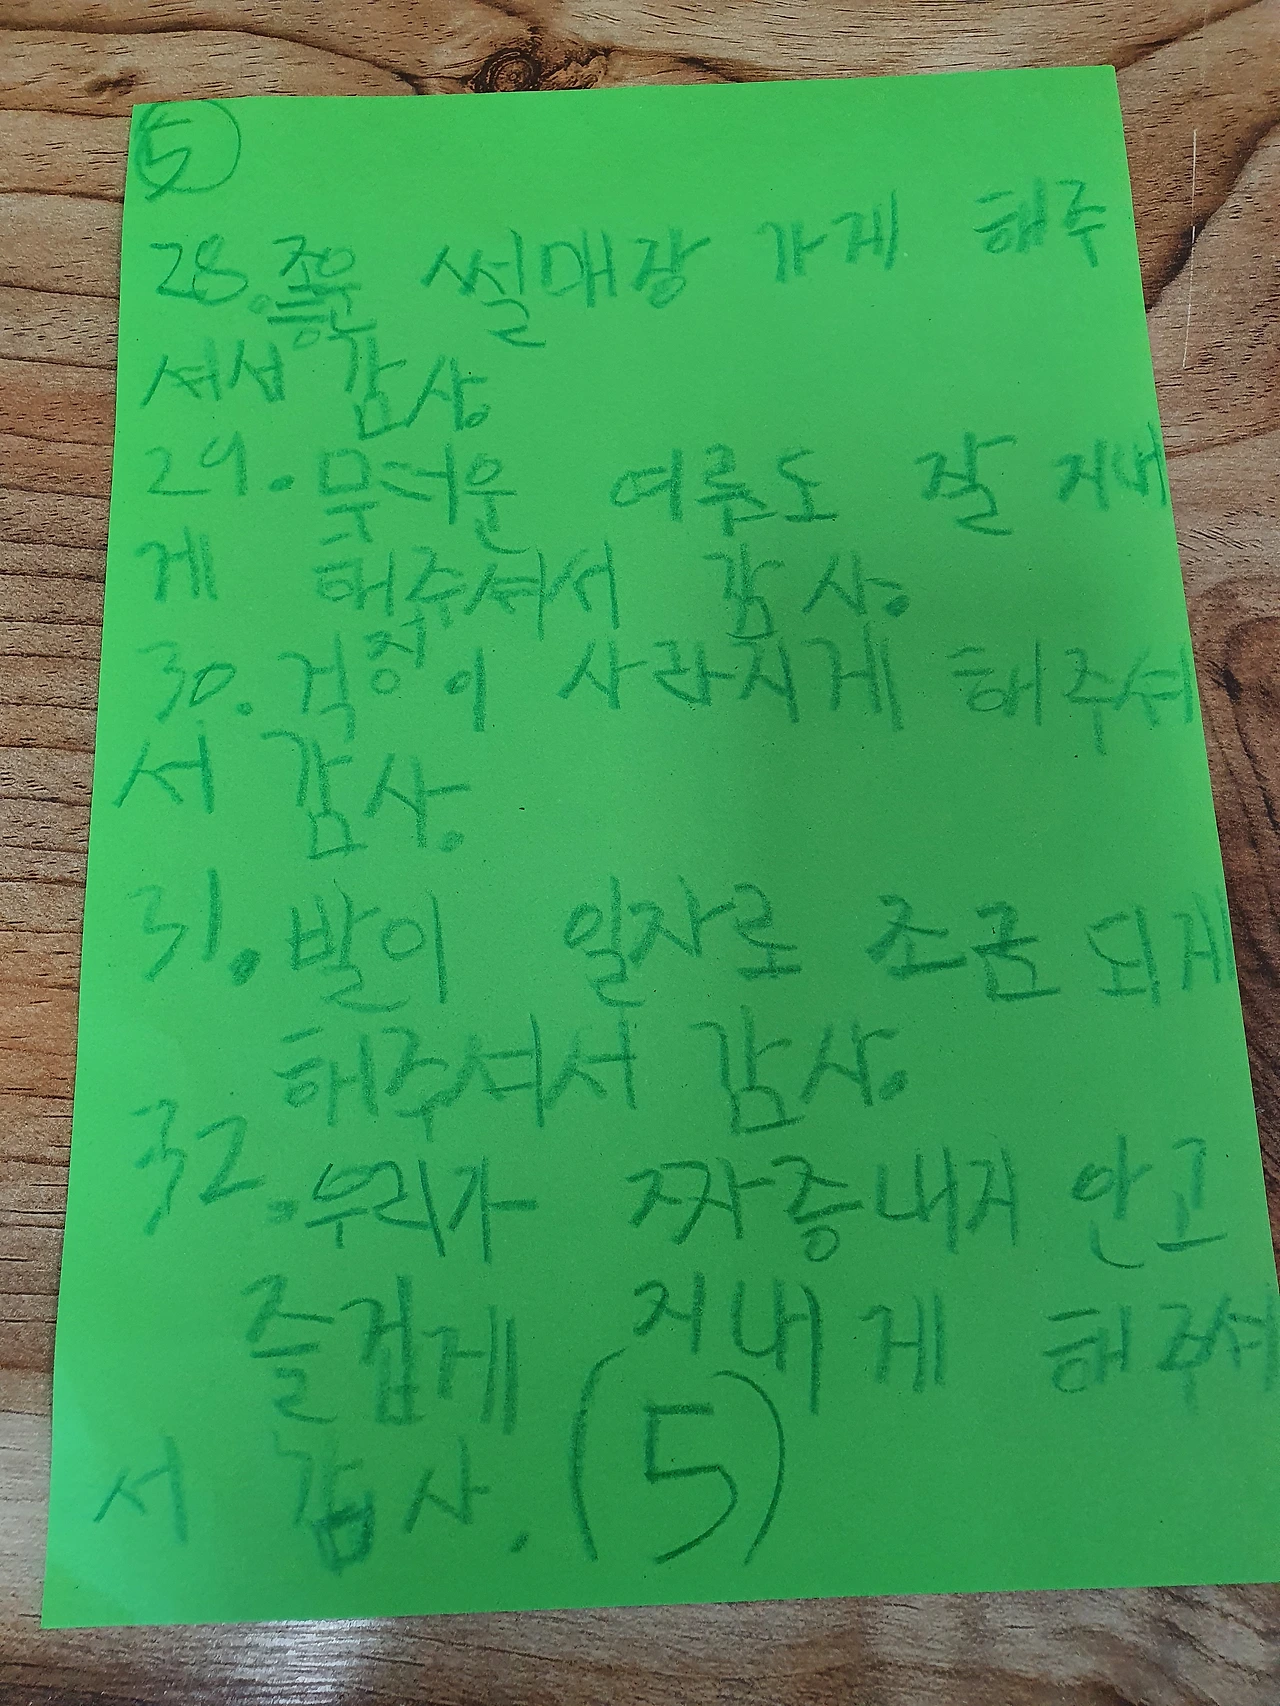 ⑤
28. 좋은 썰매장 가게 해주
셔서 감상
29. 무더운 여루도 잘 지내
게 해주셔서 감사.
30. 걱정이 사라지게 해주셔
서 감사.
31. 발이 일자로 조금 되게
해주셔서 감사.
32. 우리가 짜증내지 안고
즐겁게 지내게 해주셔
서 감사. (5)